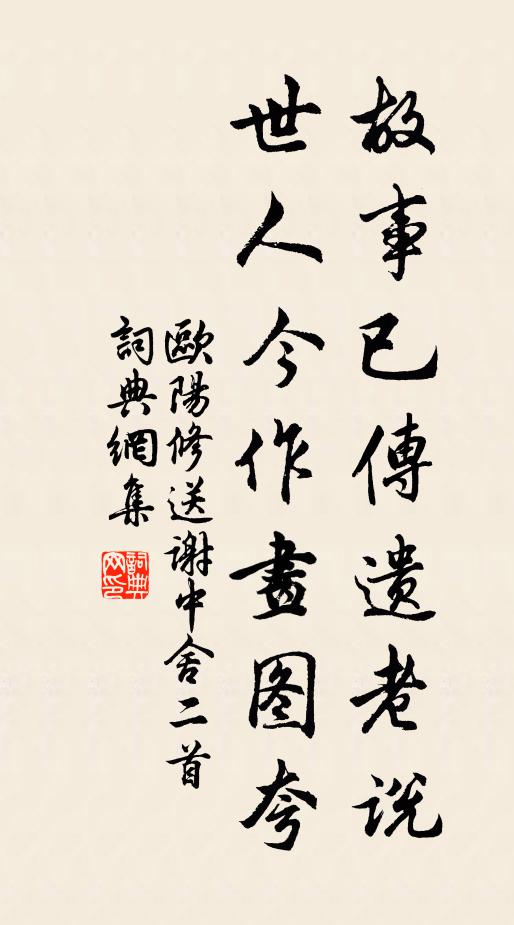 故事已傳遺老説
世人今作畫图夸
歐陽修送谢中舍二首
詞典網集
詞典网印